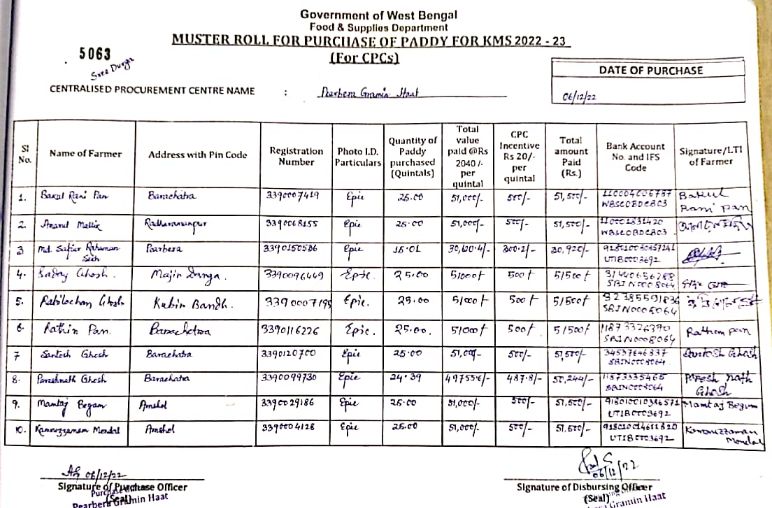 Government of West Bengal
Food & Supplies Department
MUSTER ROLL FOR PURCHASE OF PADDY FOR KMS 2022 - 23
(For CPCs)
5063
Sree Durga
CENTRALISED PROCUREMENT CENTRE NAME : Pearbera Gramin Haat
DATE OF PURCHASE
06/12/22
Sl No. Name of Farmer Address with Pin Code Registration Number Photo I.D. Particulars Quantity of Paddy purchased (Quintals) Total value paid @Rs 2040/- per quintal CPC Incentive Rs 20/- per quintal Total amount Paid (Rs.) Bank Account No. and IFS Code Signature/LTI of Farmer
1. Bakul Rani Pan Barachatra 3390007419 Epic 25.00 51,000/- 500/- 51,500/- WBSC0BDCB03 Bakul Rani Pan
2. Anand Mallik 3390068155 Epic 25.00 51,000/- 500/- 51,500/- WBSC0BDCB03
3 Md. Safiur Rahaman Pearbera 3390150586 Epic 15.01 300.2/- 30,920/- UTIB0003692
4. Ghosh Majir Danga. 3390096449 Epic. 25.00 51000/- 500/- 51500/- SBIN0008064
5. Rabilochan Ghosh Kubir Bandh. Epic. 25.00 51000/- 500/- 51500/- SBIN0008064
6. Rathin Pan. Barachatra 3390116226 Epic. 25.00. 51000/- 500/- 51500/- SBIN0008064 Rathin pan
7 Santosh Ghosh Barachatra 3390120700 Epic 25.00 51,000/- 500/- 51,500/- 34537646337 SBIN0008064 Santosh Ghosh
8. Pareshnath Ghosh Barachatra 3390099730 Epic 24.39 49755.6/- 487.8/- 50,244/- 11873335465 SBIN0008064 Paresh nath Ghosh
9. Mamtaj Begam Amshol 3390029186 Epic 25.00 51,000/- 500/- 51,500/- UTIB0003692 Mamtaj Begum
10. Kamruzzaman Mondal Amshol 3390004128 Epic 25.00 51,000/- 500/- 51,500/- UTIB0003692 Kamruzzaman Mondal
06/12/22
06/12/22
Signature of Purchase Officer
Signature of Disbursing Officer
(Seal)
(Seal)
Pearbera Gramin Haat
Gramin Haat